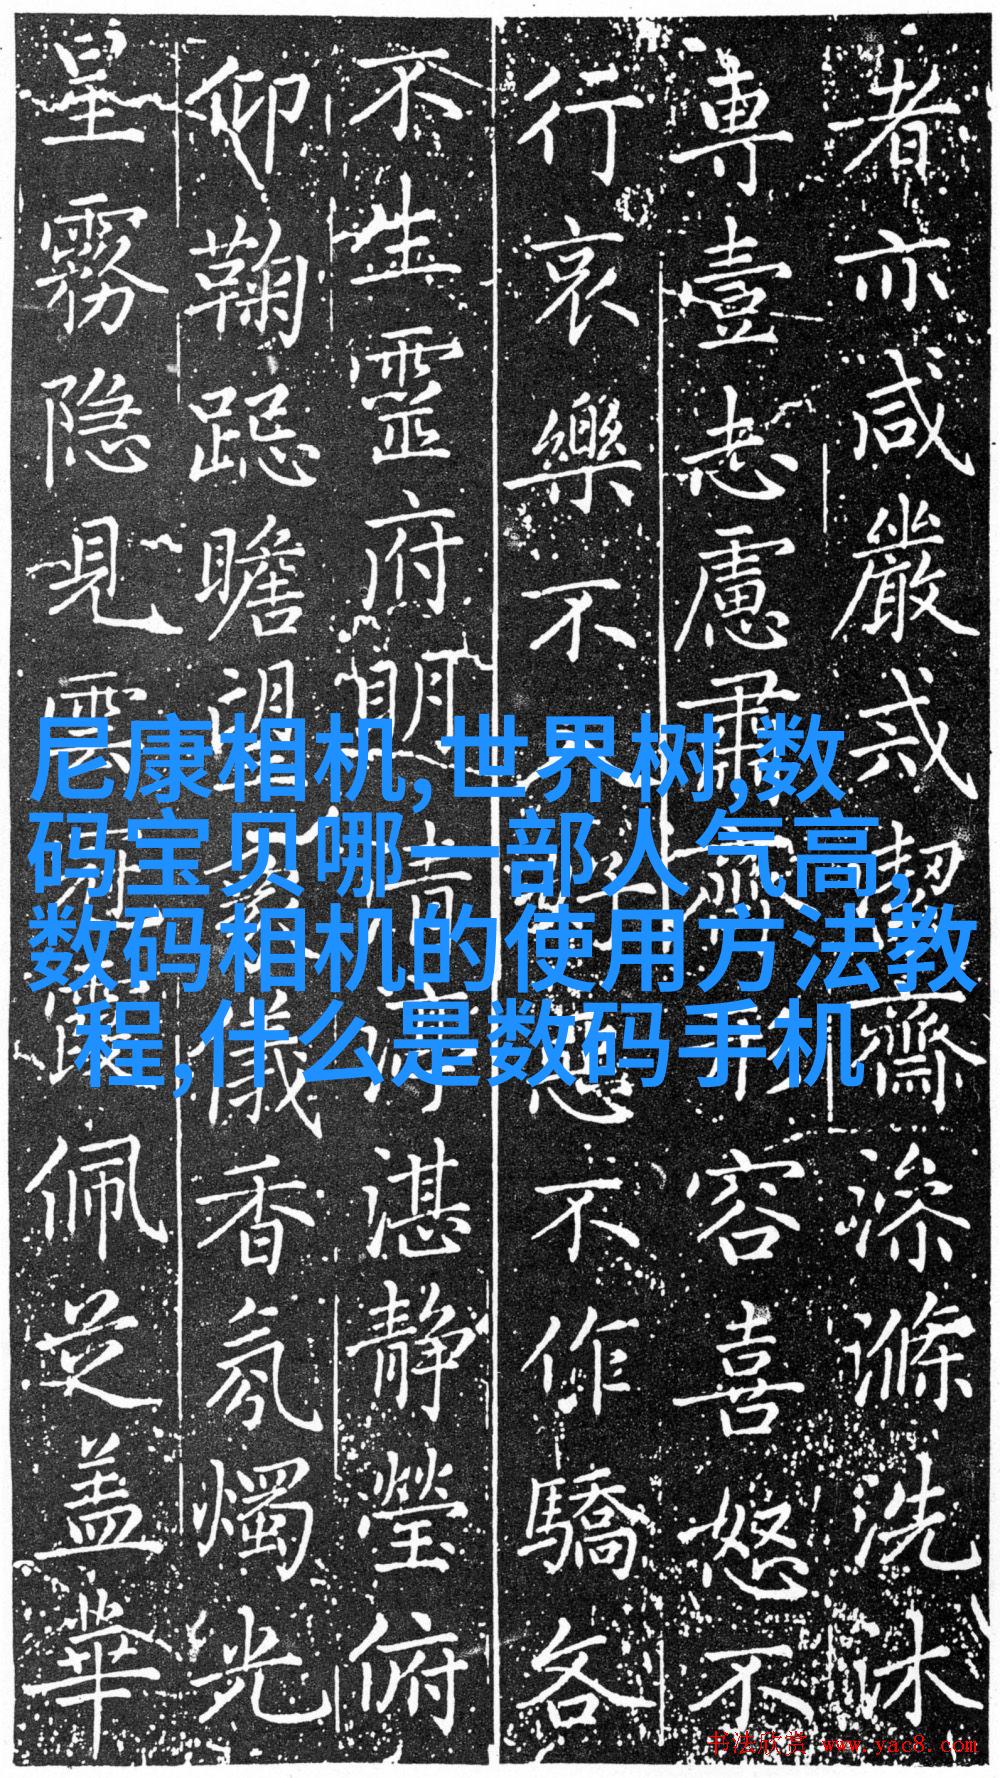 尼康相机,世界树,数
码宝贝哪一部人气高,
数码相机的使用方法教
程,什么是数码手机
者亦咸嚴戒潔齋澡滌洗沐
專壹志慮肅齊容喜怒不
行哀樂不不作驕各
不生靈府明湛靜瑩俯
仰鞠跽瞻望儀香氛燭光
星霧隐見雲佩芝盖華
书法欣赏 www.yac8.com